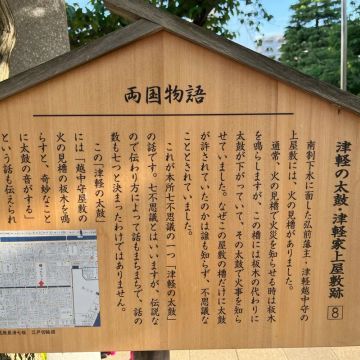 両国物語
津軽の太鼓・津軽家上屋敷跡
8
南割下水に面した弘前藩主・津軽越中守の
上屋敷には、火の見櫓がありました。
通常、火の見櫓で火災を知らせる時は板木
を鳴らしますが、この櫓には板木の代わりに
太鼓が下がっていて、その太鼓で火事を知ら
せていました。なぜこの屋敷の櫓だけに太鼓
が許されていたのかは誰も知らず、不思議な
こととされていました。
これが本所七不思議の一つ「津軽の太鼓」
の話です。七不思議とはいいますが、伝説な
ので伝わり方によって話もまちまちで、話の
数も七つと決まったわけではありません。
この「津軽の太鼓」
には「越中守屋敷の
火の見櫓の板木を鳴
らすと、奇妙なこと
に太鼓の音がする」
という話も伝えられ